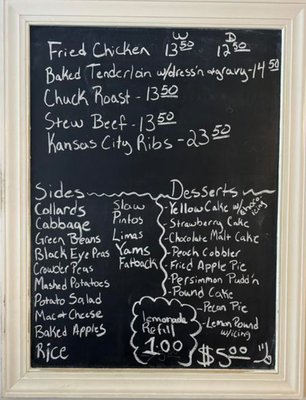 W D
Fried Chicken 13 50 12 50
Baked Tenderloin w/dress'n + gravy - 14 50
Chuck Roast - 13 50
Stew Beef - 13 50
Kansas City Ribs - 23 50
Sides
Collards
Cabbage
Green Beans
Black Eye Peas
Crowder Peas
Mashed Potatoes
Potato Salad
Mac + Cheese
Baked Apples
Rice
Slaw
Pintos
Limas
Yams
Fatback
Desserts
- Yellow Cake w/ choco icing
- Strawberry Cake
- Chocolate Malt Cake
- Peach Cobbler
- Fried Apple Pie
- Persimmon Pudd'n
- Pound Cake
- Pecan Pie
- Lemon Pound
w/icing
$5.00
lemonade
Refill
1.00